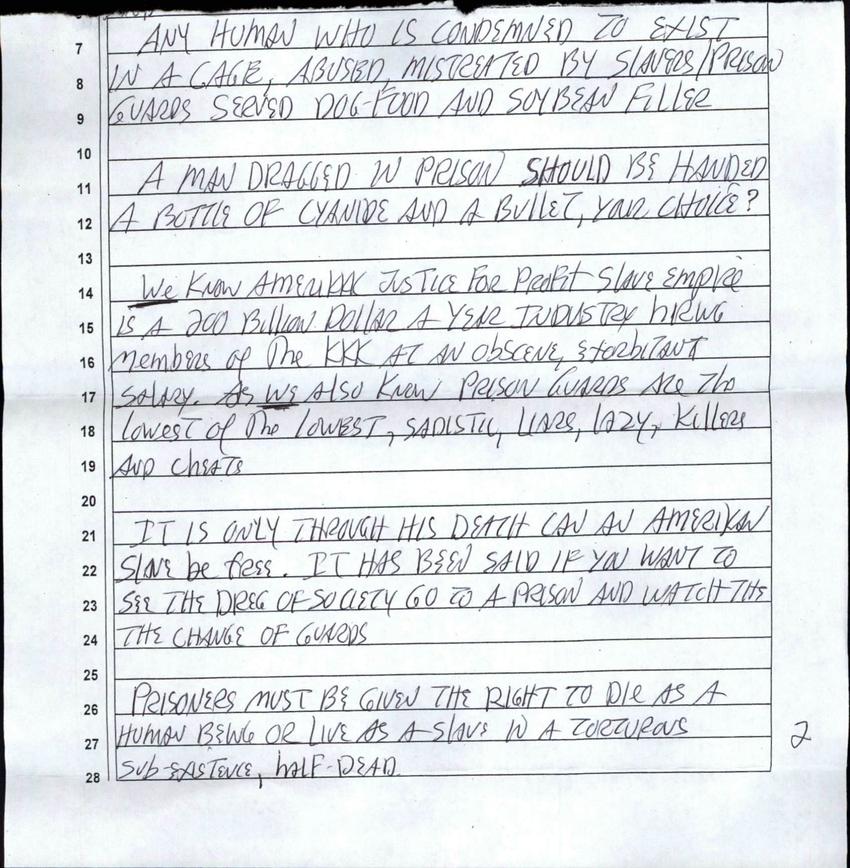 7 ANY HUMAN WHO IS CONDEMNED TO EXIST
8 IN A CAGE, ABUSED, MISTREATED BY SLAVERS/PRISON
9 GUARDS SERVED DOG-FOOD AND SOYBEAN FILLER
10
11 A MAN DRAGGED IN PRISON SHOULD BE HANDED
12 A BOTTLE OF CYANIDE AND A BULLET, YOUR CHOICE?
13
14 We KNOW AMERIKKK JUSTICE FOR PROFIT SLAVE EMPIRE
15 IS A 200 BILLION DOLLAR A YEAR INDUSTRY HIRING
16 MEMBERS OF THE KKK AT AN OBSCENE, EXORBITANT
17 SALARY. AS WE ALSO KNOW PRISON GUARDS ARE THE
18 LOWEST OF THE LOWEST, SADISTIC, LIARS, LAZY, KILLERS
19 AND CHEATS
20
21 IT IS ONLY THROUGH HIS DEATH CAN AN AMERIKAN
22 SLAVE be free. IT HAS BEEN SAID IF YOU WANT TO
23 SEE THE DREG OF SOCIETY GO TO A PRISON AND WATCH THE
24 THE CHANGE OF GUARDS
25
26 PRISONERS MUST BE GIVEN THE RIGHT TO DIE AS A
27 HUMAN BEING OR LIVE AS A SLAVE IN A TORTUROUS
28 SUB-EXISTENCE, HALF-DEAD.
2